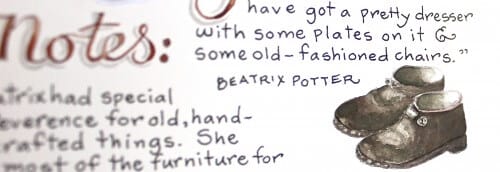 have got a pretty dresser
with some plates on it &
some old-fashioned chairs."
BEATRIX POTTER
Notes:
had special
for old, hand-
things. She
most of the furniture for